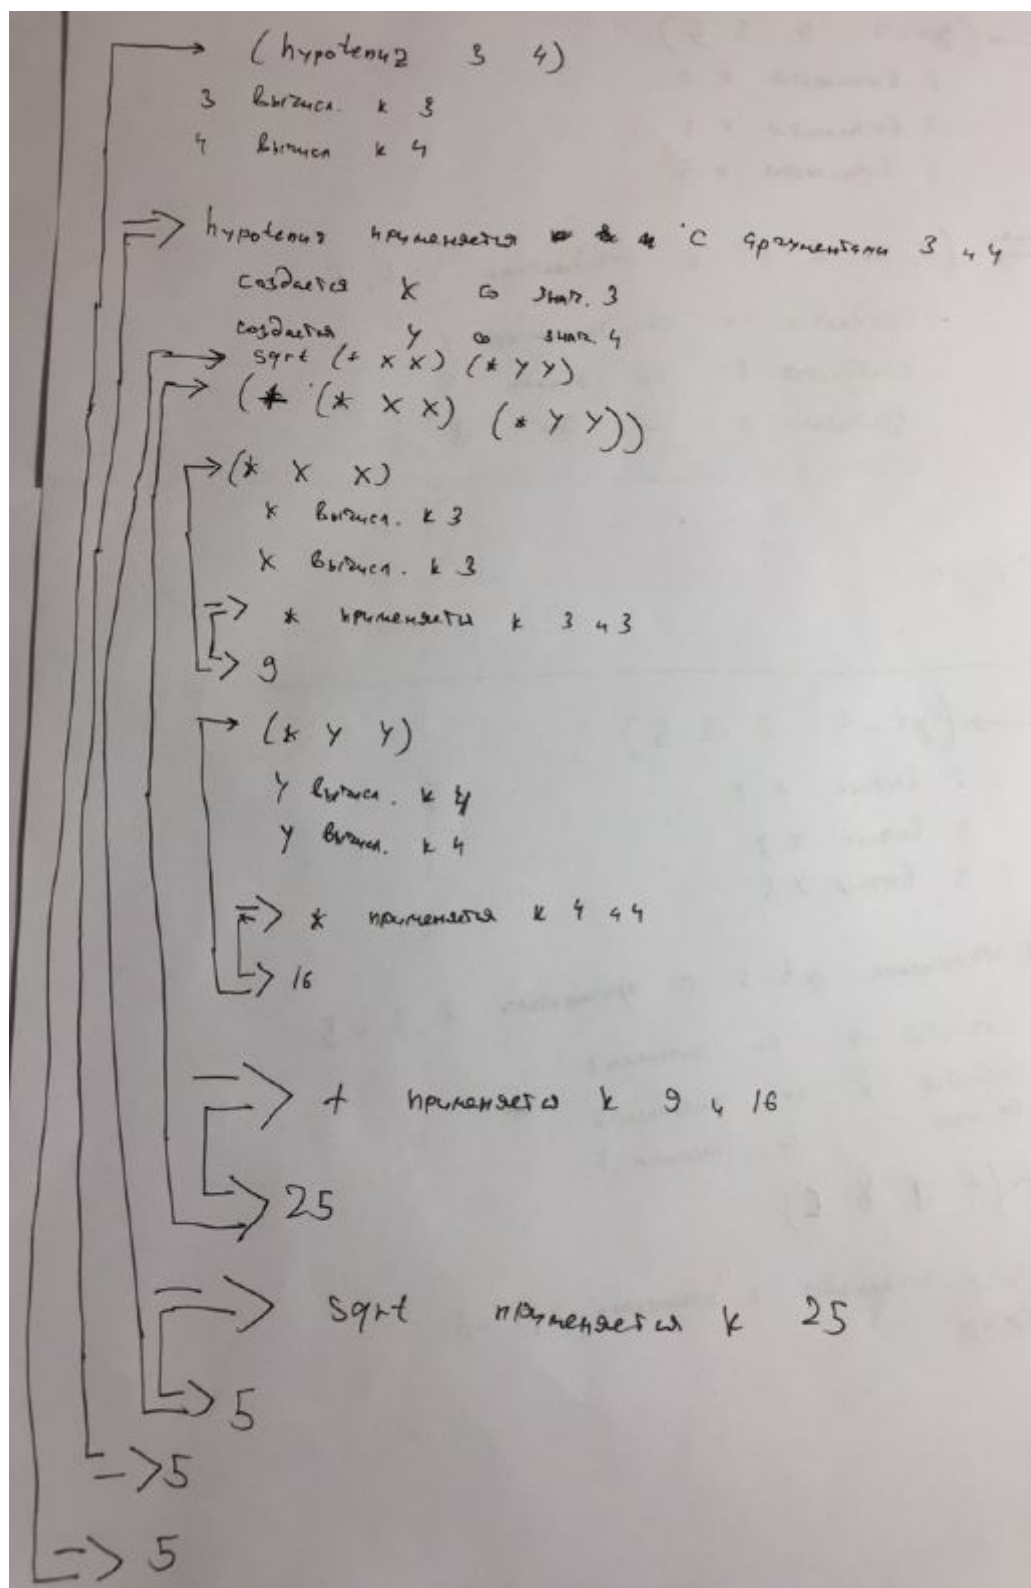 (hypotenuz 3 4)
3 вычисл. к 3
4 вычисл к 4
hypotenuz применяется с аргументами 3 и 4
создается X со знач. 3
создается Y со знач. 4
sqrt (+ X X) (* Y Y)
(+ (* X X) (* Y Y))
(* X X)
X вычисл. к 3
X вычисл. к 3
* применяется к 3 и 3
9
(* Y Y)
Y вычисл. к 4
Y вычисл. к 4
* применяется к 4 и 4
16
+ применяется к 9 и 16
25
sqrt применяется к 25
5
5
5